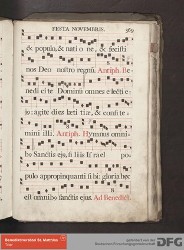 FESTA NOVEMBRIS. 369
& populo, & nati o ne, & fecisti
nos Deo nostro regnū. Antiph. Be-
nedi ci te Dominū omnes e lecti e-
agite dies læti tiæ, & confite-
mini illi. Antiph. Hymnus omni-
bo Sanctis ejus, filiis Israel po-
pulo appropinquanti sibi: gloria hæc
est omnibo sanctis ejus. Ad Benedict.
Benediktinerabtei St. Matthias
Trier
DFG